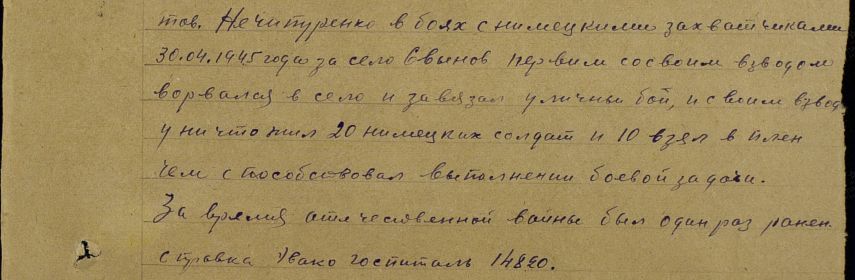 тов. Нечитуренко в боях с нимецкими захватчиками
30.04.1945 года за село Свынов первим со своим взводом
ворвался в село и завязал уличны бой, и своим взвод
уничтожил 20 нимецких солдат и 10 взял в плен
чем способствовал выполнении боевой задачи.
За время отечественной войны был один раз ранен
справка Эвако госпиталь 1480.